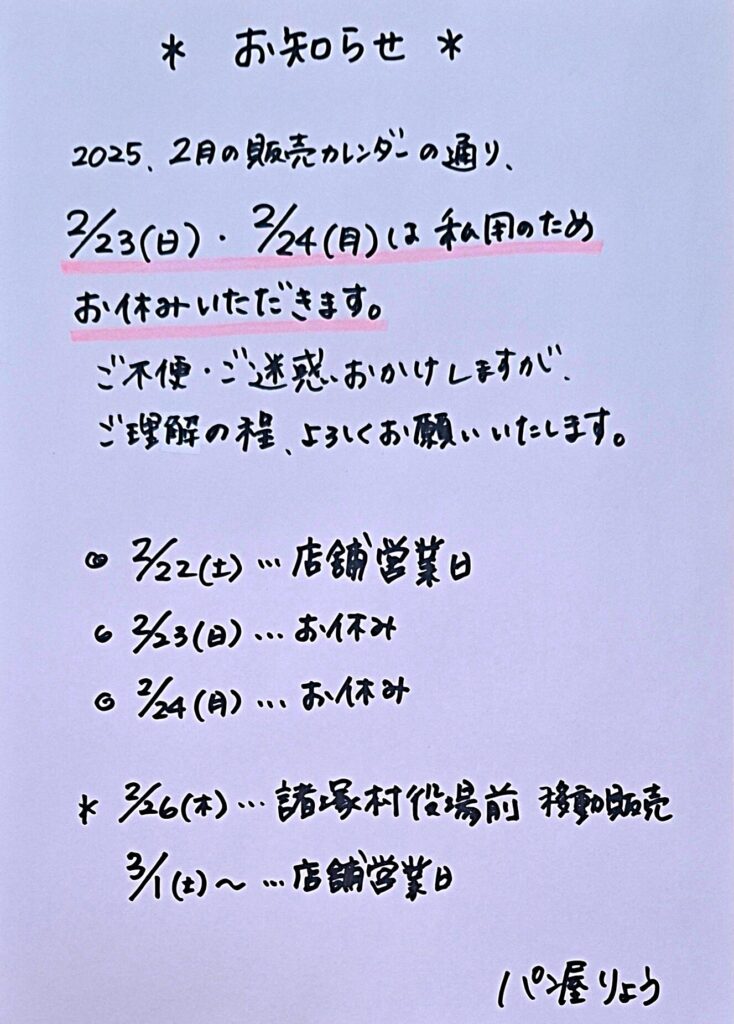 * お知らせ *
2025、2月の販売カレンダーの通り、
2/23(日)・2/24(月)は私用のため
お休みいただきます。
ご不便・ご迷惑おかけしますが、
ご理解の程、よろしくお願いいたします。
◎ 2/22(土)…店舗営業日
◎ 2/23(日)…お休み
◎ 2/24(月)…お休み
* 2/26(木)…諸塚村役場前 移動販売
3/1(土)〜…店舗営業日
パン屋りょう